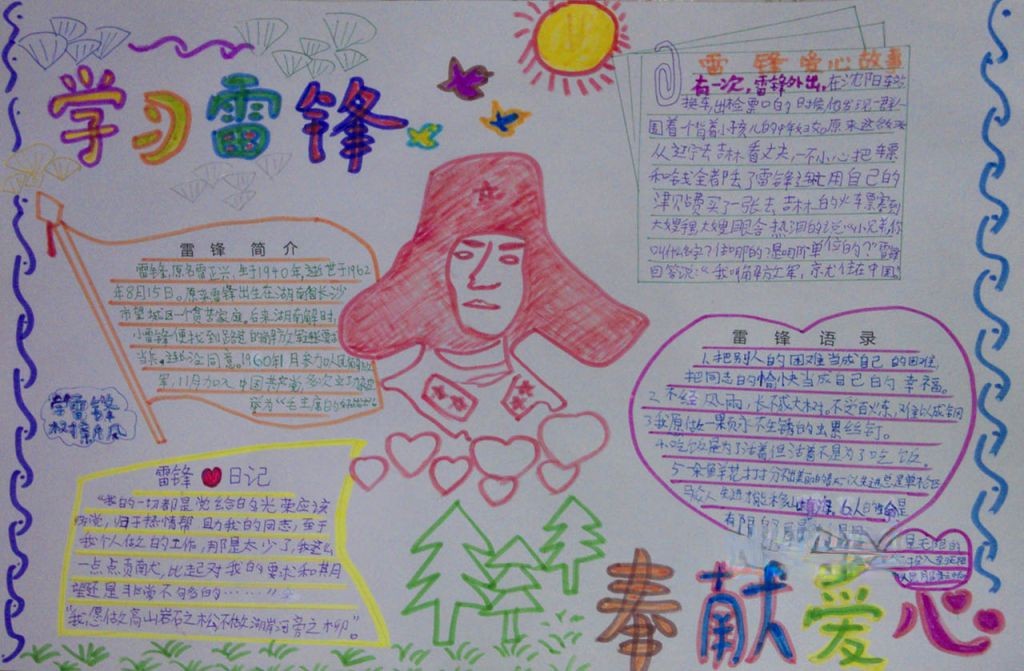 学习雷锋
雷锋爱心故事
有一次,雷锋外出,在沈阳车站
换车,出检票口的时候他发现一群人
围着一个背着小孩儿的中年妇女。原来这
从辽宁去吉林看丈夫,一不小心把车票
和钱全都丢了雷锋连忙用自己的
津贴费买了一张去吉林的火车票塞到
大嫂 大嫂眼含热泪的说"小兄弟你
叫什么名字?住哪的?是哪个单位的?"雷锋
回答说:"我叫解放军,家就住在中国"
雷锋简介
雷锋,原名雷正兴,生于1940年,逝世于1962
年8月15日。原来雷锋出生在湖南省长沙
市望城区一个贫苦家庭。后来湖南解 时,
小雷锋便找到
当兵。 同意。1960年 月参加人民解放
军,11月加入中国共产党,多次立功
誉为"毛主席的
学雷锋
树新风
雷锋语录
1.把别人的困难当成自己的困难,
把同志的愉快当成自己的幸福。
2.不经风雨,长不成大树,不受百炼,难以成钢
3.我愿做一颗永不生锈的 丝钉。
4.吃饭是为了活着但活着不是为了吃饭。
5一朵鲜花打扮不出美丽的春天
6人的生命是
有限的
是无限的
雷锋日记
"我的一切都是党给的光荣应该
归于热情帮助我的同志,至于
我个人做的工作,那是太少了,我这么
一点点贡献,比起对我的要求和期
望还是非常不够的……"
"我愿做高山岩石之松不做湖岸河旁之柳"。
奉献爱心